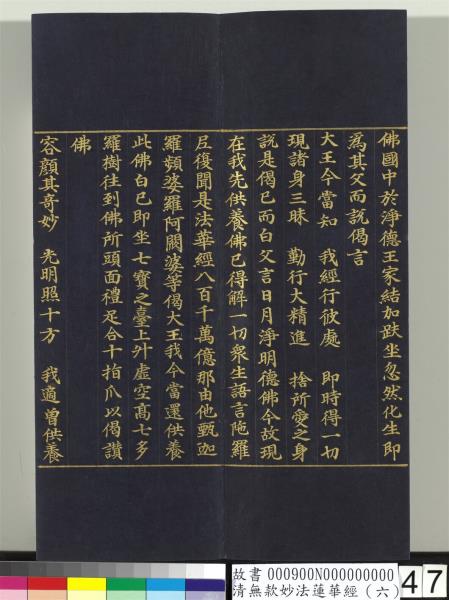 佛國中於淨德王家結加趺坐忽然化生即
為其父而說偈言
大王今當知　我經行彼處　即時得一切
現諸身三昧　勤行大精進　捨所愛之身
說是偈已而白父言日月淨明德佛今故現
在我先供養佛已得解一切衆生語言陁羅
尼復聞是法華經八百千萬億那由他甄迦
羅頻婆羅阿閦婆等偈大王我今當還供養
此佛白已即坐七寶之臺上升虛空高七多
羅樹往到佛所頭面禮足合十指爪以偈讚
佛
容顏甚奇妙　光明照十方　我適曾供養
故書 000900N000000000
清無款妙法蓮華經（六）
47